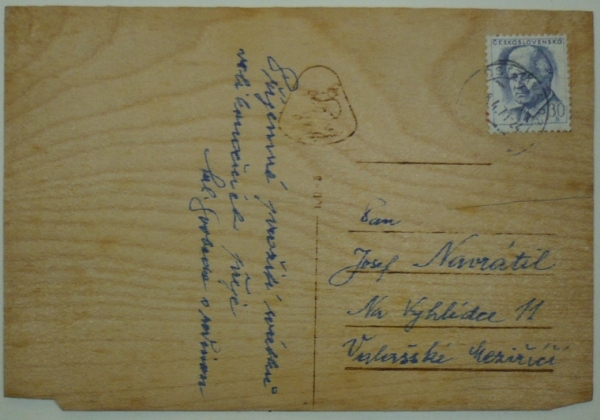 Příjemné prožití svátků
velikonočních přeje
s rodinou
ČESKOSLOVENSKO
30
Pan
Josef Navrátil
Na Vyhlídce 11
Valašské Meziříčí